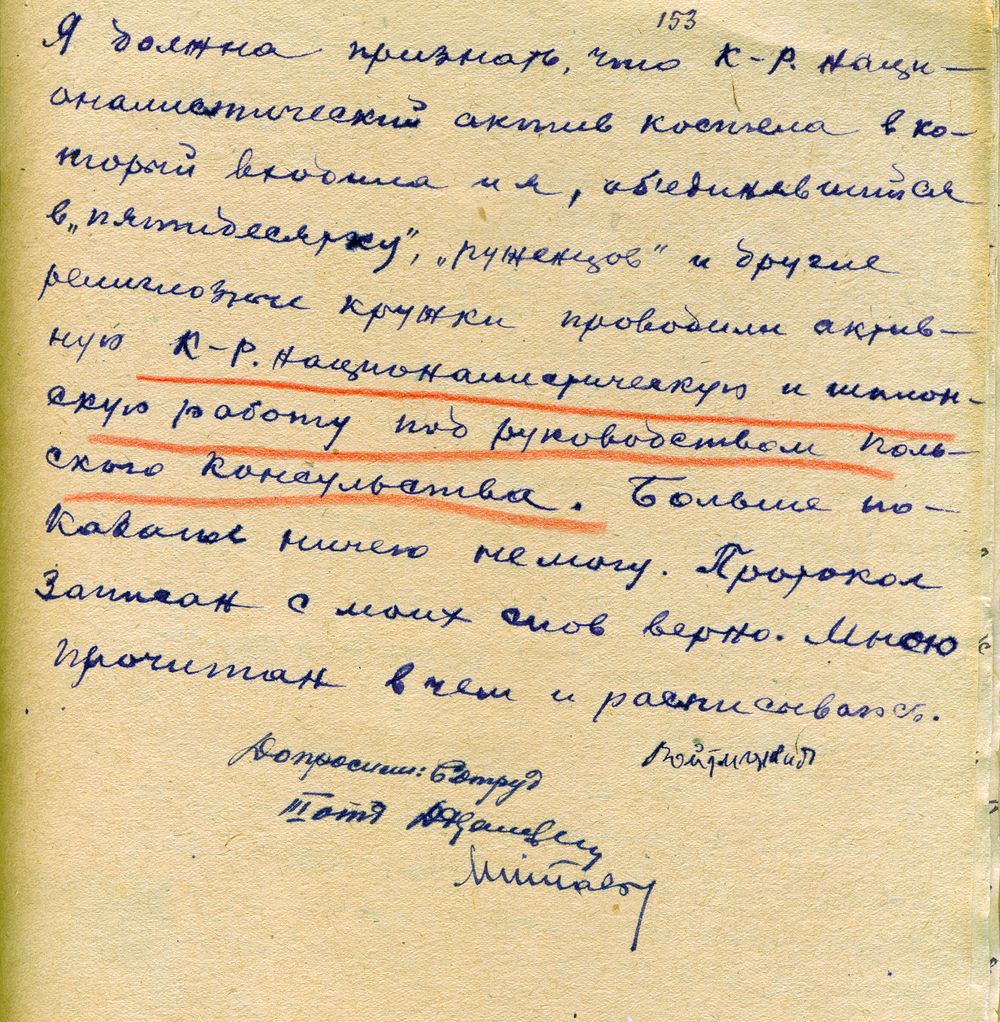 153
Я должна признать, что К-Р. наци-
оналистический актив костела в ко-
торый входила и я, объединявшийся
в „пятидесятку", „руженцов" и другие
религиозные кружки проводили актив-
ную К-Р. националистическую и шпион-
скую работу под руководством Поль-
ского Консульства. Больше по-
казать ничего не могу. Протокол
Записан с моих слов верно. Мною
прочитан в чем и расписываюсь.
Допросили: Сотруд
III отд